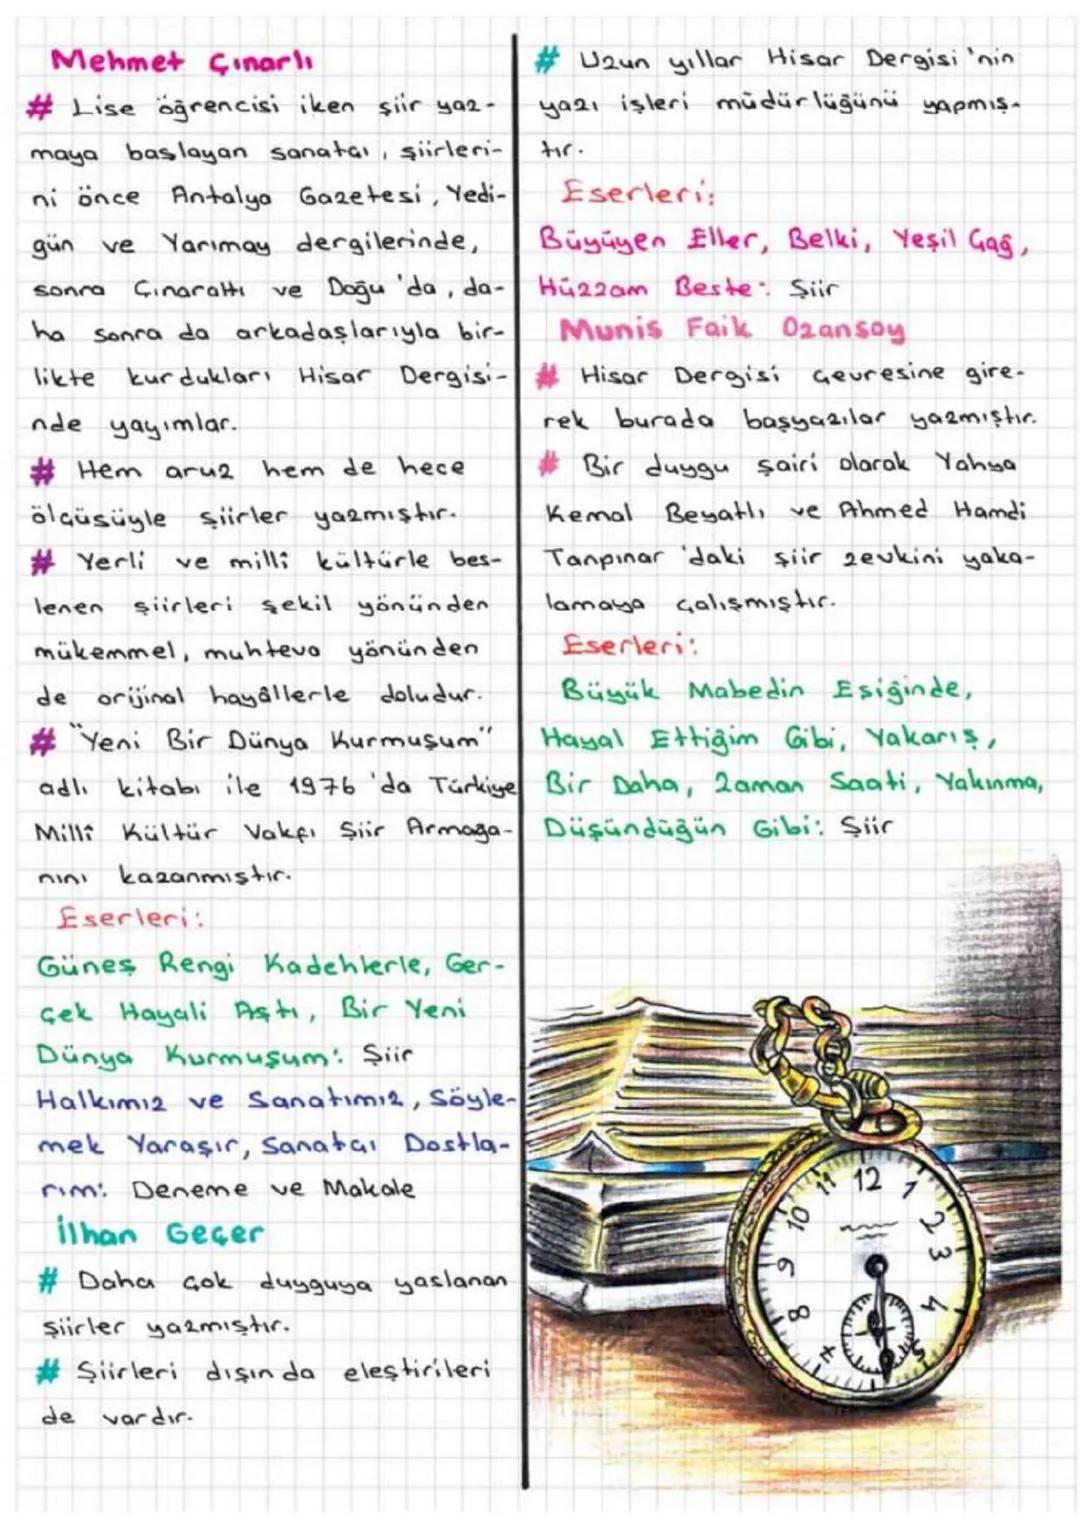 Mehmet Çınarlı
# Lise öğrencisi iken şiir yaz-
maya başlayan sanatçı, şiirleri-
ni önce Antalya Gazetesi, Yedi-
gün ve Yarımay dergilerinde,
sonra Çınaraltı ve Doğu'da, da-
ha sonra da arkadaşlarıyla bir-
likte kurdukları Hisar Dergisi-
nde yayımlar.
# Hem aruz hem de hece
ölçüsüyle şiirler yazmıştır.
# Yerli ve millî kültürle bes-
lenen şiirleri şekil yönünden
mükemmel, muhteva yönünden
de orijinal hayâllerle doludur.
# "Yeni Bir Dünya Kurmuşum"
adlı kitabı ile 1976'da Türkiye
Millî Kültür Vakfı Şiir Armağa-
nını kazanmıştır.
Eserleri:
Güneş Rengi Kadehlerle, Ger-
çek Hayali Aştı, Bir Yeni
Dünya Kurmuşum: Şiir
Halkımız ve Sanatımız, Söyle-
mek Yaraşır, Sanatçı Dostla-
rım: Deneme ve Makale
İlhan Geçer
# Daha çok duyguya yaslanan
şiirler yazmıştır.
# Şiirleri dışında eleştirileri
de vardır.
# Uzun yıllar Hisar Dergisi'nin
yazı işleri müdürlüğünü yapmış-
tır.
Eserleri:
Büyüyen Eller, Belki, Yeşil Çağ,
Hüzzam Beste: Şiir
Munis Faik Ozansoy
# Hisar Dergisi çevresine gire-
rek burada başyazılar yazmıştır.
# Bir duygu şairi olarak Yahya
Kemal Beyatlı ve Ahmed Hamdi
Tanpınar'daki şiir zevkini yaka-
lamaya çalışmıştır.
Eserleri:
Büyük Mabedin Eşiğinde,
Hayal Ettiğim Gibi, Yakarış,
Bir Daha, Zaman Saati, Yakınma,
Düşündüğün Gibi: Şiir
12
11 1
10 2
9 3
8 4
7 5